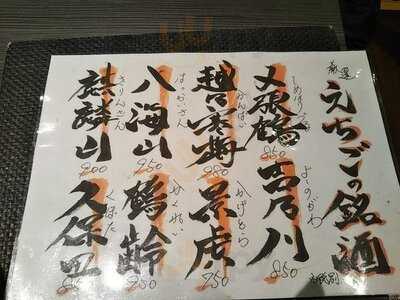 厳選
えちごの銘酒
〆張鶴
しめはりつる
850
吉乃川
よしのがわ
850
越乃寒梅
かんばい
景虎
かげとら
750
八海山
はっかいさん
750
鶴齢
かくれい
750
麒麟山
きりんざん
700
久保田
くぼた